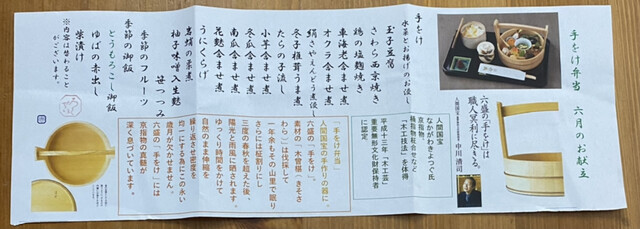 手をけ弁当　六月のお献立
六盛の「手をけ」は
職人冥利に尽きる。
人間国宝
中川 清司
人間国宝
なかがわきよつぐ氏
京指物
桶指物柾合せなど
「木工技法」を体得
平成十三年「木工芸」
重要無形文化財保持者
に認定
手をけ
水菜とお揚げのお浸し
玉子豆腐
さわら西京焼き
鶏の塩麹焼き
車海老含ませ煮
オクラ含ませ煮
絹さやえんどう煮浸し
たらの子流し
冬子椎茸うま煮
小芋含ませ煮
冬瓜含ませ煮
南瓜含ませ煮
花麩含ませ煮
うにくらげ
岩蛸の柔煮
柚子味噌入生麩
笹つつみ
季節のフルーツ
季節の御飯
とうもろこし御飯
ゆばの赤出し
柴漬け
※内容は替わること
がございます。
「手をけ弁当」
人間国宝の手作りの器に。
六盛の「手をけ」。
素材の「木曽椹」きそさ
わら」は伐採して
一年余もその山里で眠り
さらには柾割りにし
三度の春秋を超えた後、
陽光と雨風に晒されます。
ゆっくり時間をかけて
自然のまま伸縮を
繰り返させ密度を
均一にする為にこのふい
歳月が欠かせません。
六盛の「手をけ」には
京指物の真髄が
深く息づいています。